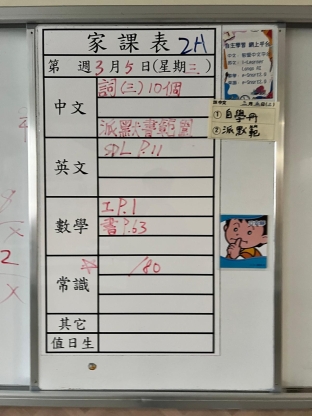 家課表 2A
第 週 3月5日(星期三)
中文
詞(三)10個
派默書範圍
英文
SDL P.11
數學
工P.1
書P.63
常識
☆ /80
其它
值日生
自主學習 網上平台
① 自學冊
② 派默範